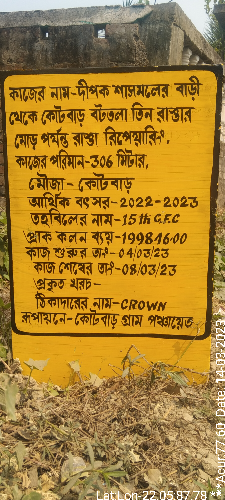 কাজের নাম-দীপক শাসমলের বাড়ী
থেকে কোটবাড় বটতলা তিন রাস্তার
মোড় পর্যন্ত রাস্তা রিপেয়ারিং,
কাজের পরিমান-306 মিটার,
মৌজা - কোটবাড়
আর্থিক বৎসর-2022-2023
তহবিলের নাম-15th C.F.C
প্রাক কলন ব্যয়-199846.00
কাজ শুরুর তাং-04/03/23
কাজ শেষের তাং-08/03/23
প্রকৃত খরচ-
ঠিকাদারের নাম-CROWN
রূপায়নে-কোটবাড় গ্রাম পঞ্চায়েত
Date: 14-03-2023
LatLon-22.05,87.79